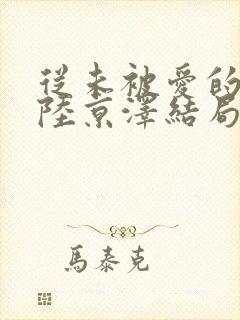 從未被愛的
陸京澤結局
馬泰克